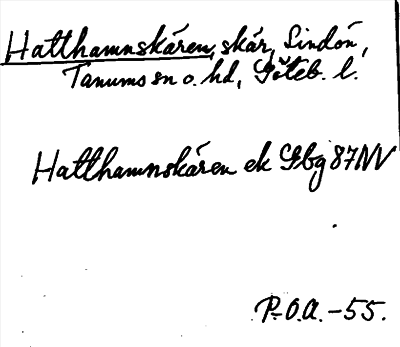 Hatthamnskären, skär, Lindön,
Tanums sn o. hd, Göteb. l.
Hatthamnskären ek Gbg 87NV
P.O.A.-55.